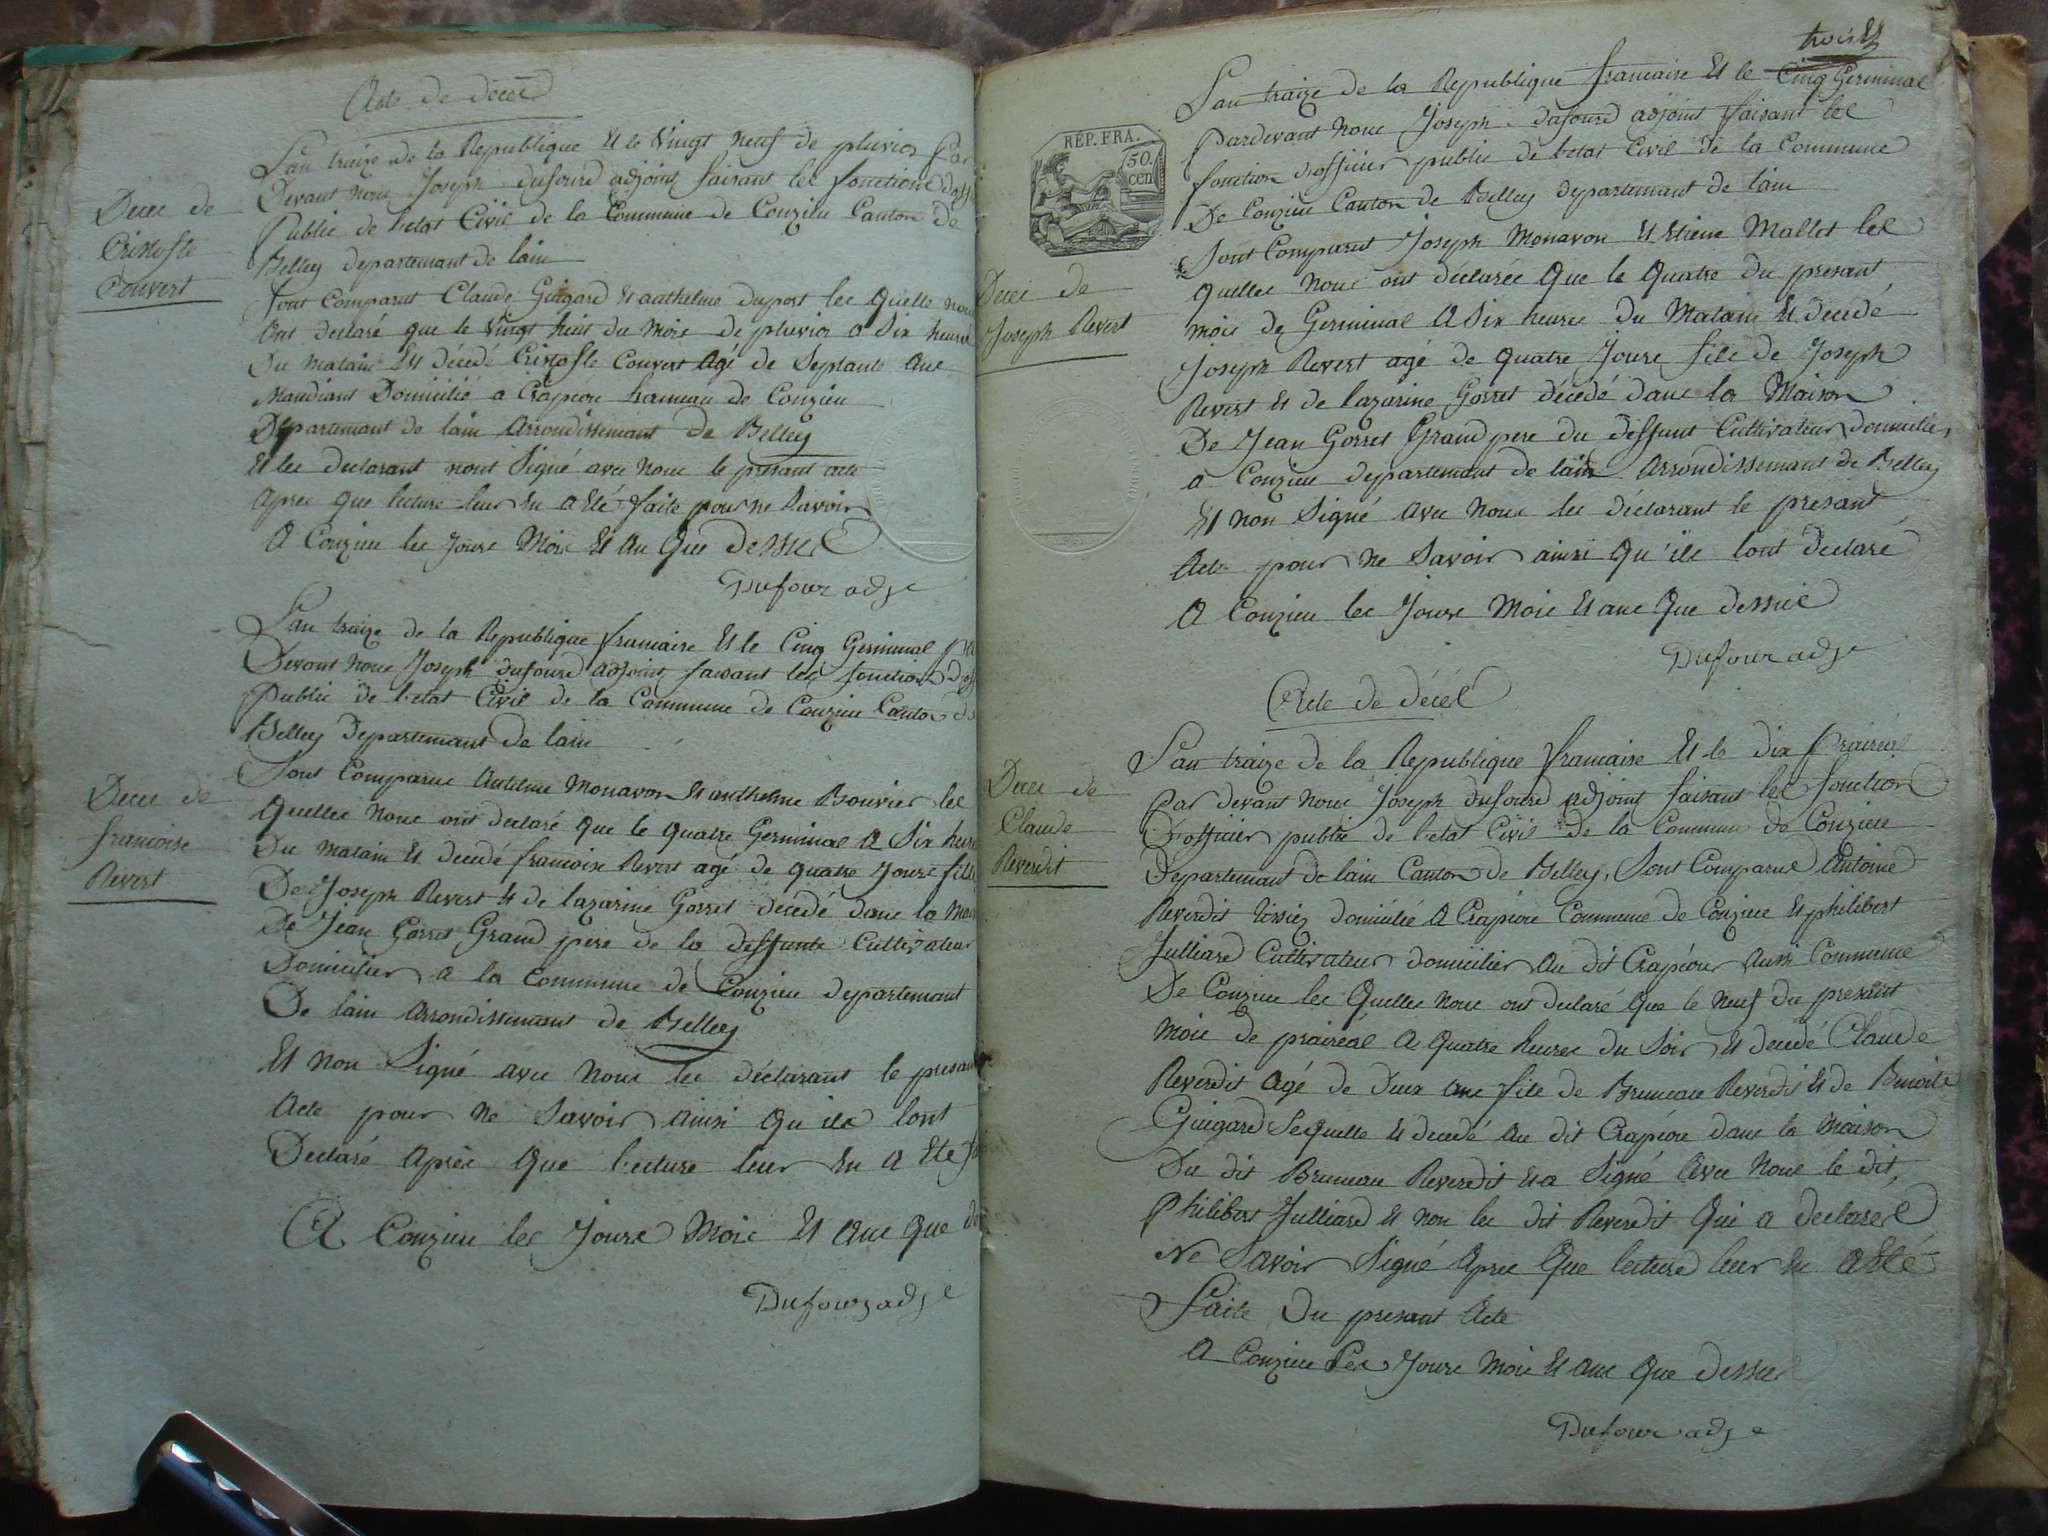 Acte de décès
Lan traize de la Republique Et le Vingt neuf de pluvios Par
Devant nous Joseph dufourd adjoint faisant les fonctions
Public de l'etat Civil de la Commune de Conzieu Canton De
Belley departement de lain
Sont Comparut Claude Guigard Et anthelme duport les quelle nous
Ont declaré que le Vingt huit du Mois de pluvios a Six heure
Du matain Est décédé Cristofle Couvert Agé de Septante Ans
Mandiant Domicilié a Crapéou hameau de Conzieu
Departemant de lain Arrondissemant de Belley
Et les declarant nont Signé avec Nous le presant acte
Apres que lecture leur En a Eté faite pour ne Savoir
A Conzieu les Jours Mois Et An Que Dessus
Dufour adj
Deces de
Cristofle
Couvert
Lan traize de la Republique francaise Et le Cinq Germinal
Devant Nous Joseph dufourd adjoint faisant les fonctions
Public de l'etat Civil de la Commune de Conzieu Canton de
Belley Departemant de lain
Sont Comparus Antelme Monavon Et anthelme Bouvier les
Quelles Nous ont declaré que le quatre Germinal a Six heure
Du matain Et decedé francoise Revert agé de quatre Jours fille
De Joseph Revert Et de lazarine Gorret décédé dans la
De Jean Gorret Grand pere de la deffunte Cultivateur
Domicilier a la Commune de Conzieu departemant
De lain Arrondissemant de Belley
Et non Signé avec Nous les déclarant le presant
Acte pour ne Savoir ainsi qu ils lont
Declaré Aprés que lecture leur En a Eté
A Conzieu les Jours Mois Et Ans que
Dufour adj
Deces de
francoise
Revert
trois Et
Lan traize de la Republique francaise Et le Cinq Germinal
Pardevant Nous Joseph dufourd adjoint faisant les
fonction d'officier public de l'etat Civil de la Commune
De Conzieu Canton de Belley departemant de lain
Sont Comparut Joseph Monavon Et Etiene Mallet les
quelles Nous ont déclarée Que le Quatre du presant
mois de Germinal A Six heures Du Matain Et décédé
Joseph Revert agé de quatre Jours fils de Joseph
Revert Et de lazarine Gorret décédé dans la Maison
De Jean Gorret Grand pere du deffunt Cultivateur Domicilier
a Conzieu departemant de lain Arrondissemant de Belley
Et non Signé avec Nous les déclarant le presant
Acte pour ne Savoir ainsi Qu'ils lont declaré
A Conzieu les Jours Mois Et ans Que dessus
Dufour adj
RÉP. FRA.
50.
cen
Deces de
Joseph Revert
Acte de décès
Lan traize de la Republique francaise Et le dix Prairéal
Par devant nous Joseph dufourd adjoint faisant les fonction
D'officier public de l'etat Civil de la Commune de Conzieu
Departemant de lain Canton de Belley, Sont Comparus Antoine
Reverdit tissiez domiciliée A Crapéou Commune de Conzieu Et philibert
Julliard Cultivateur domicilier Au dit Crapéou Aussi Commune
De Conzieu les Quelles Nous ont declaré Que le Neuf du presant
Mois de prairéal A quatre heures du Soir Et decedé Claude
Reverdit Agé de Deux ans fils de Bruneau Reverdit Et de Benoite
Guigard Lequelle Et decedé Au dit Crapéou dans la Maison
Du dit Bruneau Reverdit Et a Signé Avec Nous le dit,
Philibert Julliard Et non les dit Reverdit Qui a declaré
Ne Savoir Signé Apres Que lecture leur En a Eté
Faite Du presant Acte
A Conzieu Les Jours Mois Et ans Que dessus
Dufour adj
Deces de
Claude
Reverdit